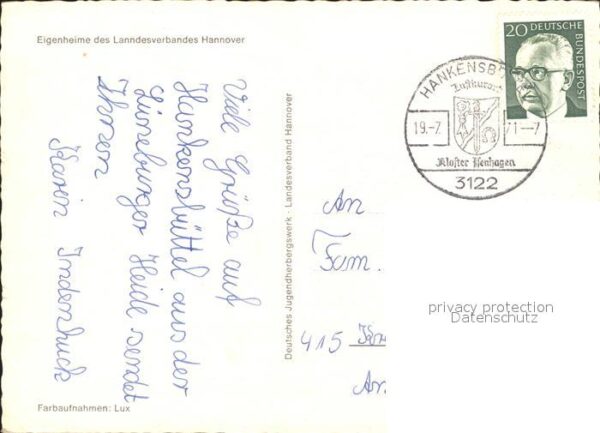 Eigenheime des Lanndesverbandes Hannover
Viele Grüße auf
Hankensbüttel aus der
Lüneburger Heide sendet
Ihnen
Karin Indenhuck
Farbaufnahmen: Lux
Deutsches Jugendherbergswerk · Landesverband Hannover
20 DEUTSCHE BUNDESPOST
HANKENSBÜ
Luftkurort
19.-7. 71.--7
Kloster Isenhagen
3122
An
Fam.
415
An.
privacy protection
Datenschutz